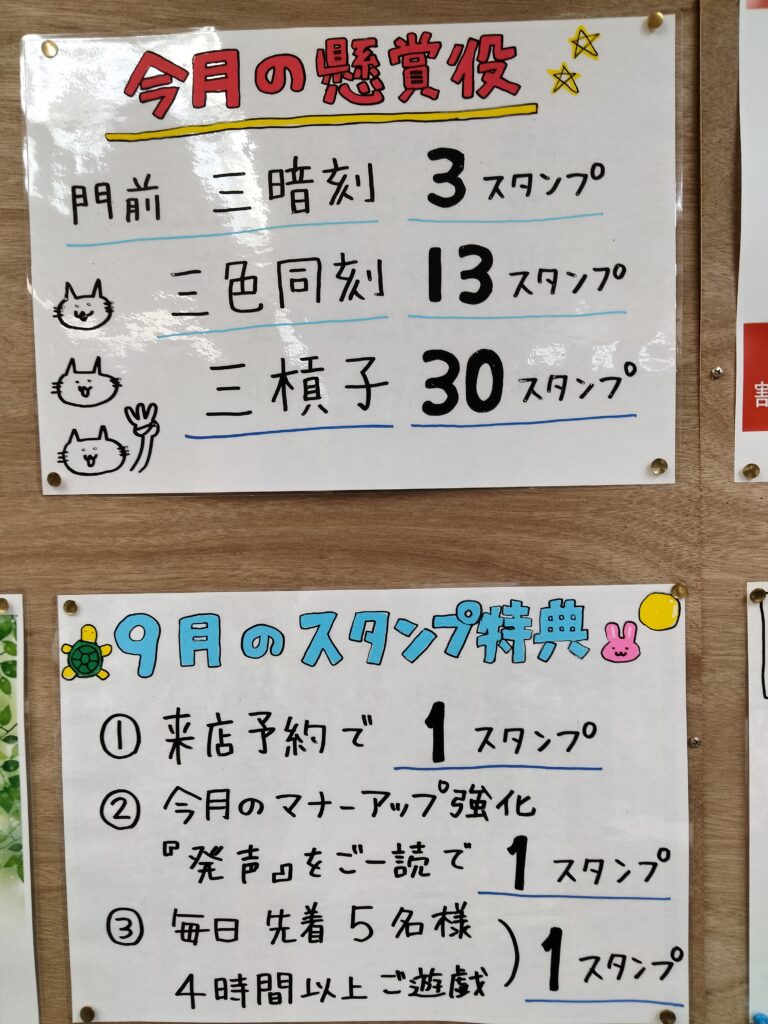 今月の懸賞役
門前 三暗刻 3スタンプ
三色同刻 13スタンプ
三槓子 30スタンプ
割
9月のスタンプ特典
① 来店予約で 1スタンプ
② 今月のマナーアップ強化
『発声』をご一読で 1スタンプ
③ 毎日 先着 5名様
4時間以上ご遊戯) 1スタンプ